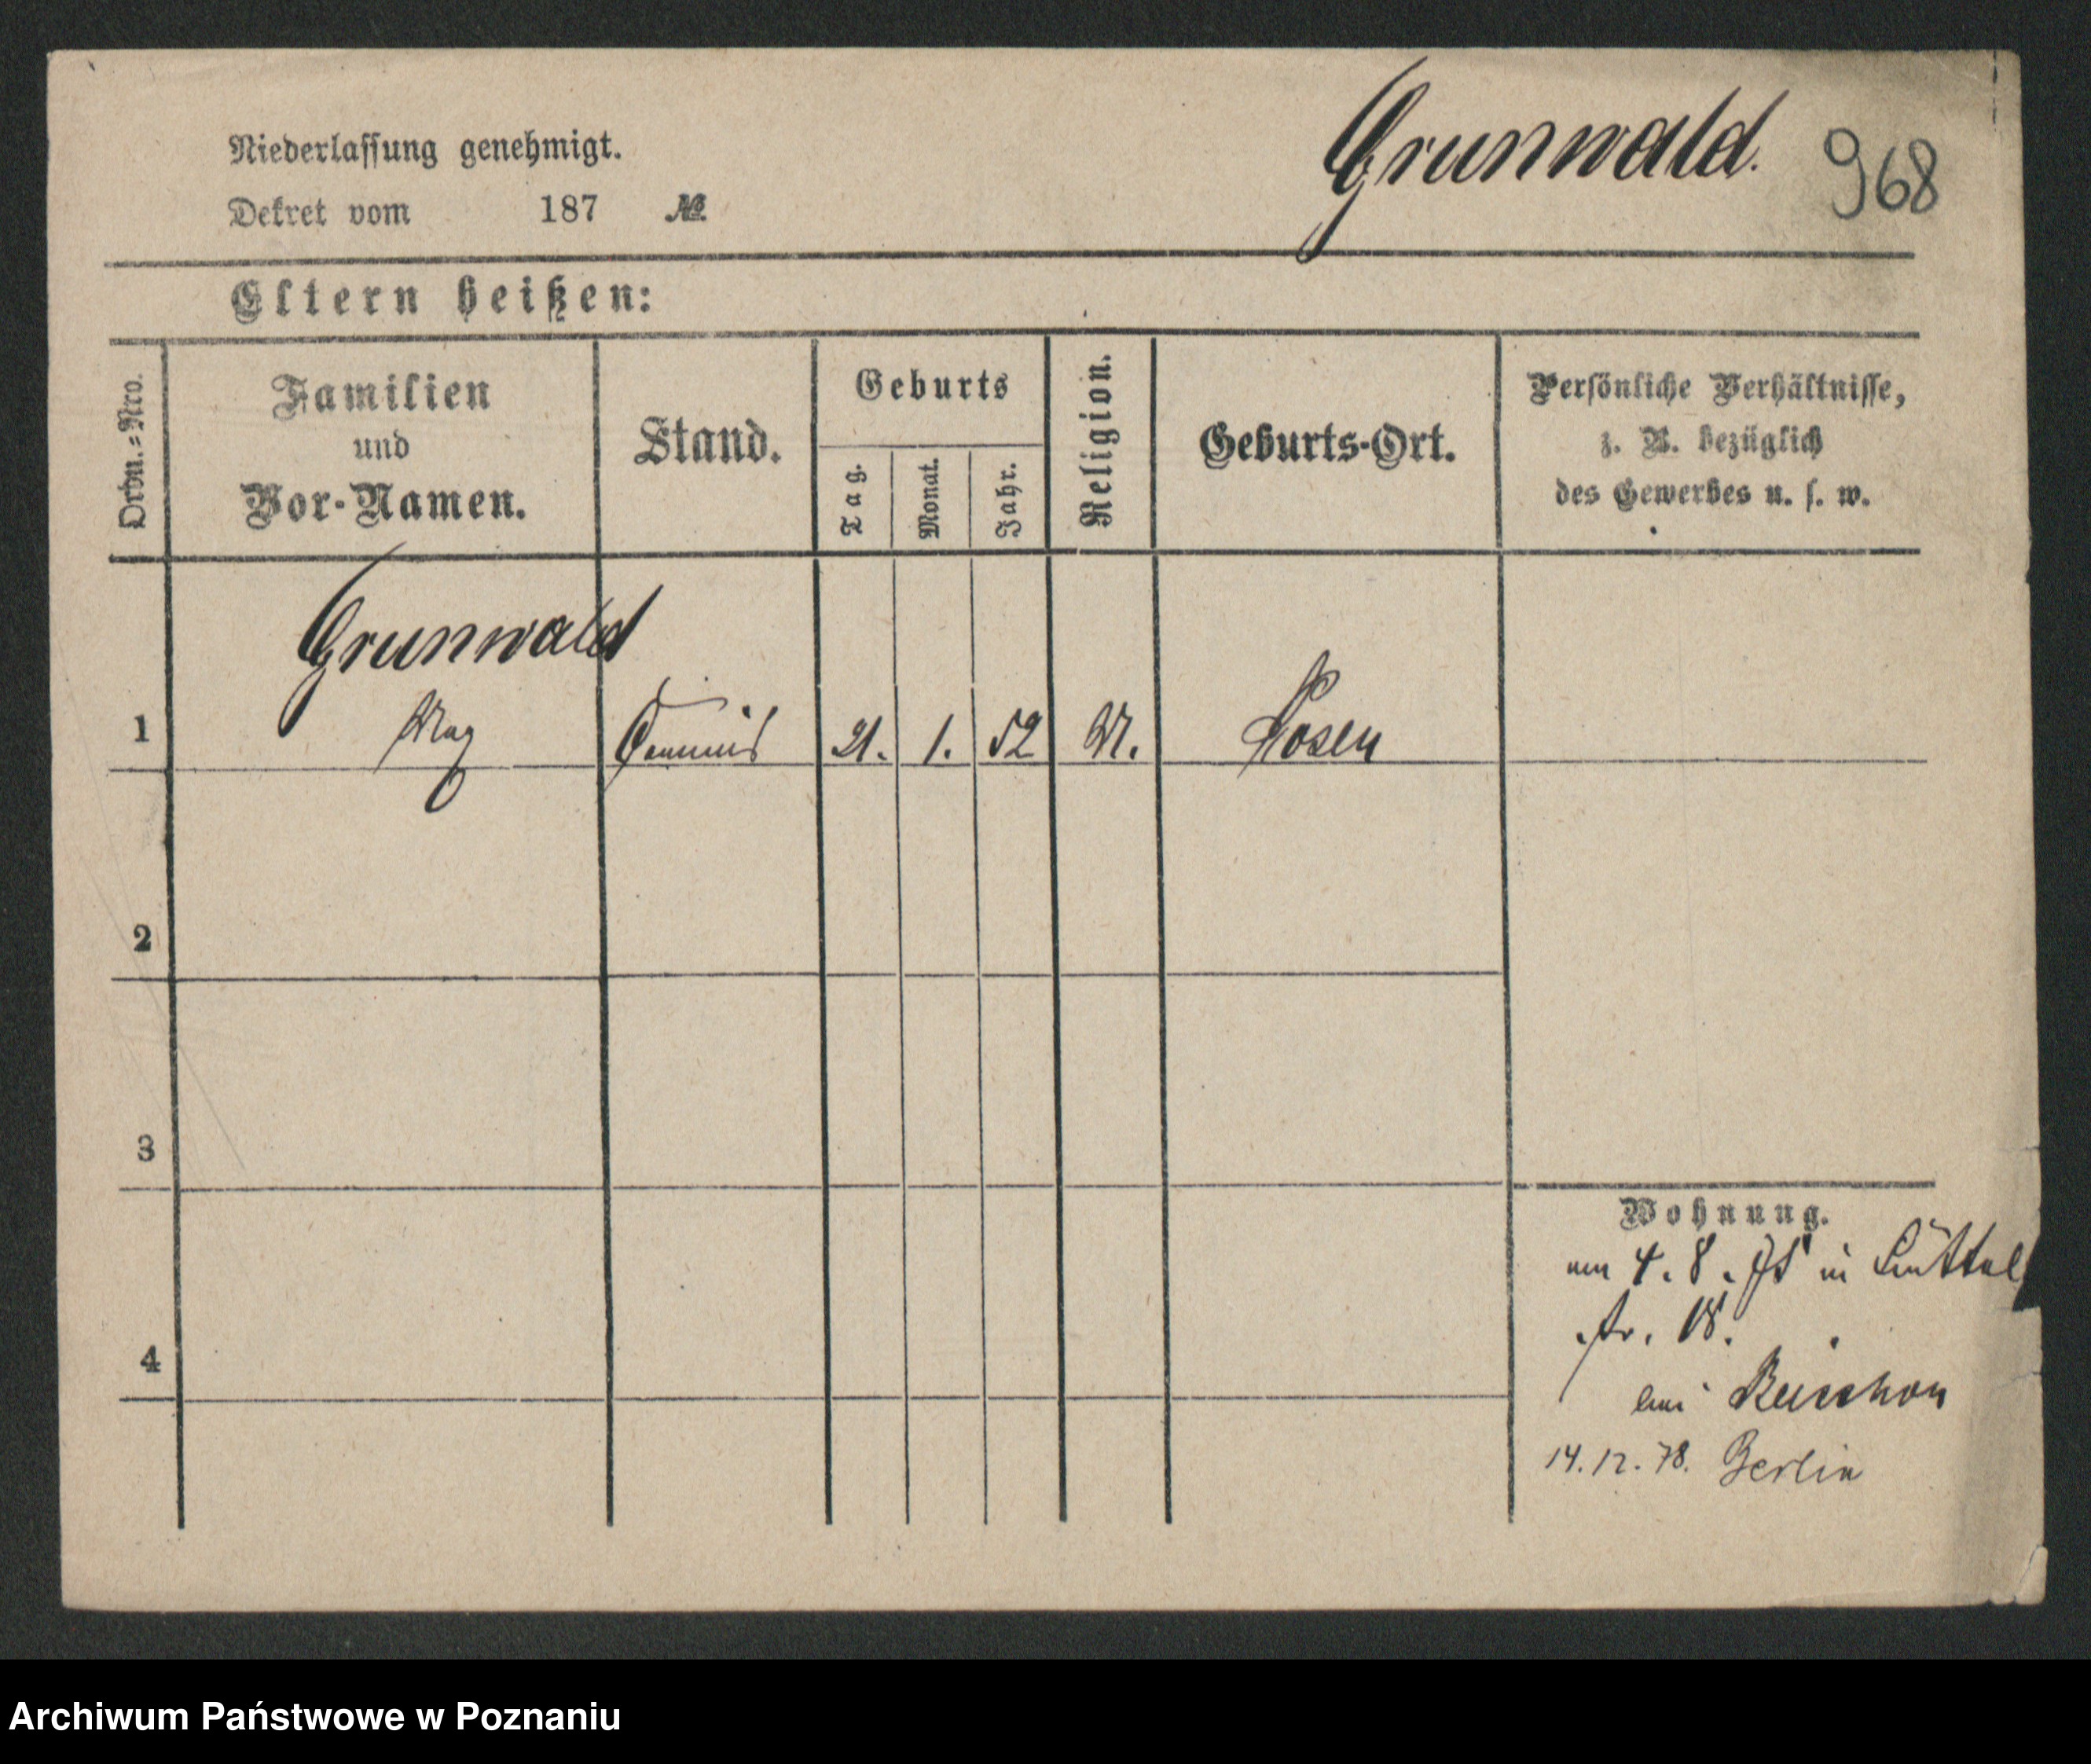 Niederlassung genehmigt.
Dekret vom 187 №
Grunwald.
968
Eltern heißen:
Ordn.-Nro.
Familien
und
Vor-Namen.
Stand.
Geburts
Tag.
Monat.
Jahr.
Religion.
Geburts-Ort.
Persönliche Verhältnisse,
z. B. bezüglich
des Gewerbes u. s. w.
Grunwald
1 Max Commis 21. 1. 52 M. Posen
2
3
4
Wohnung.
4. 8. in
str. 18.
bei
14. 12. 78. Berlin
Archiwum Państwowe w Poznaniu